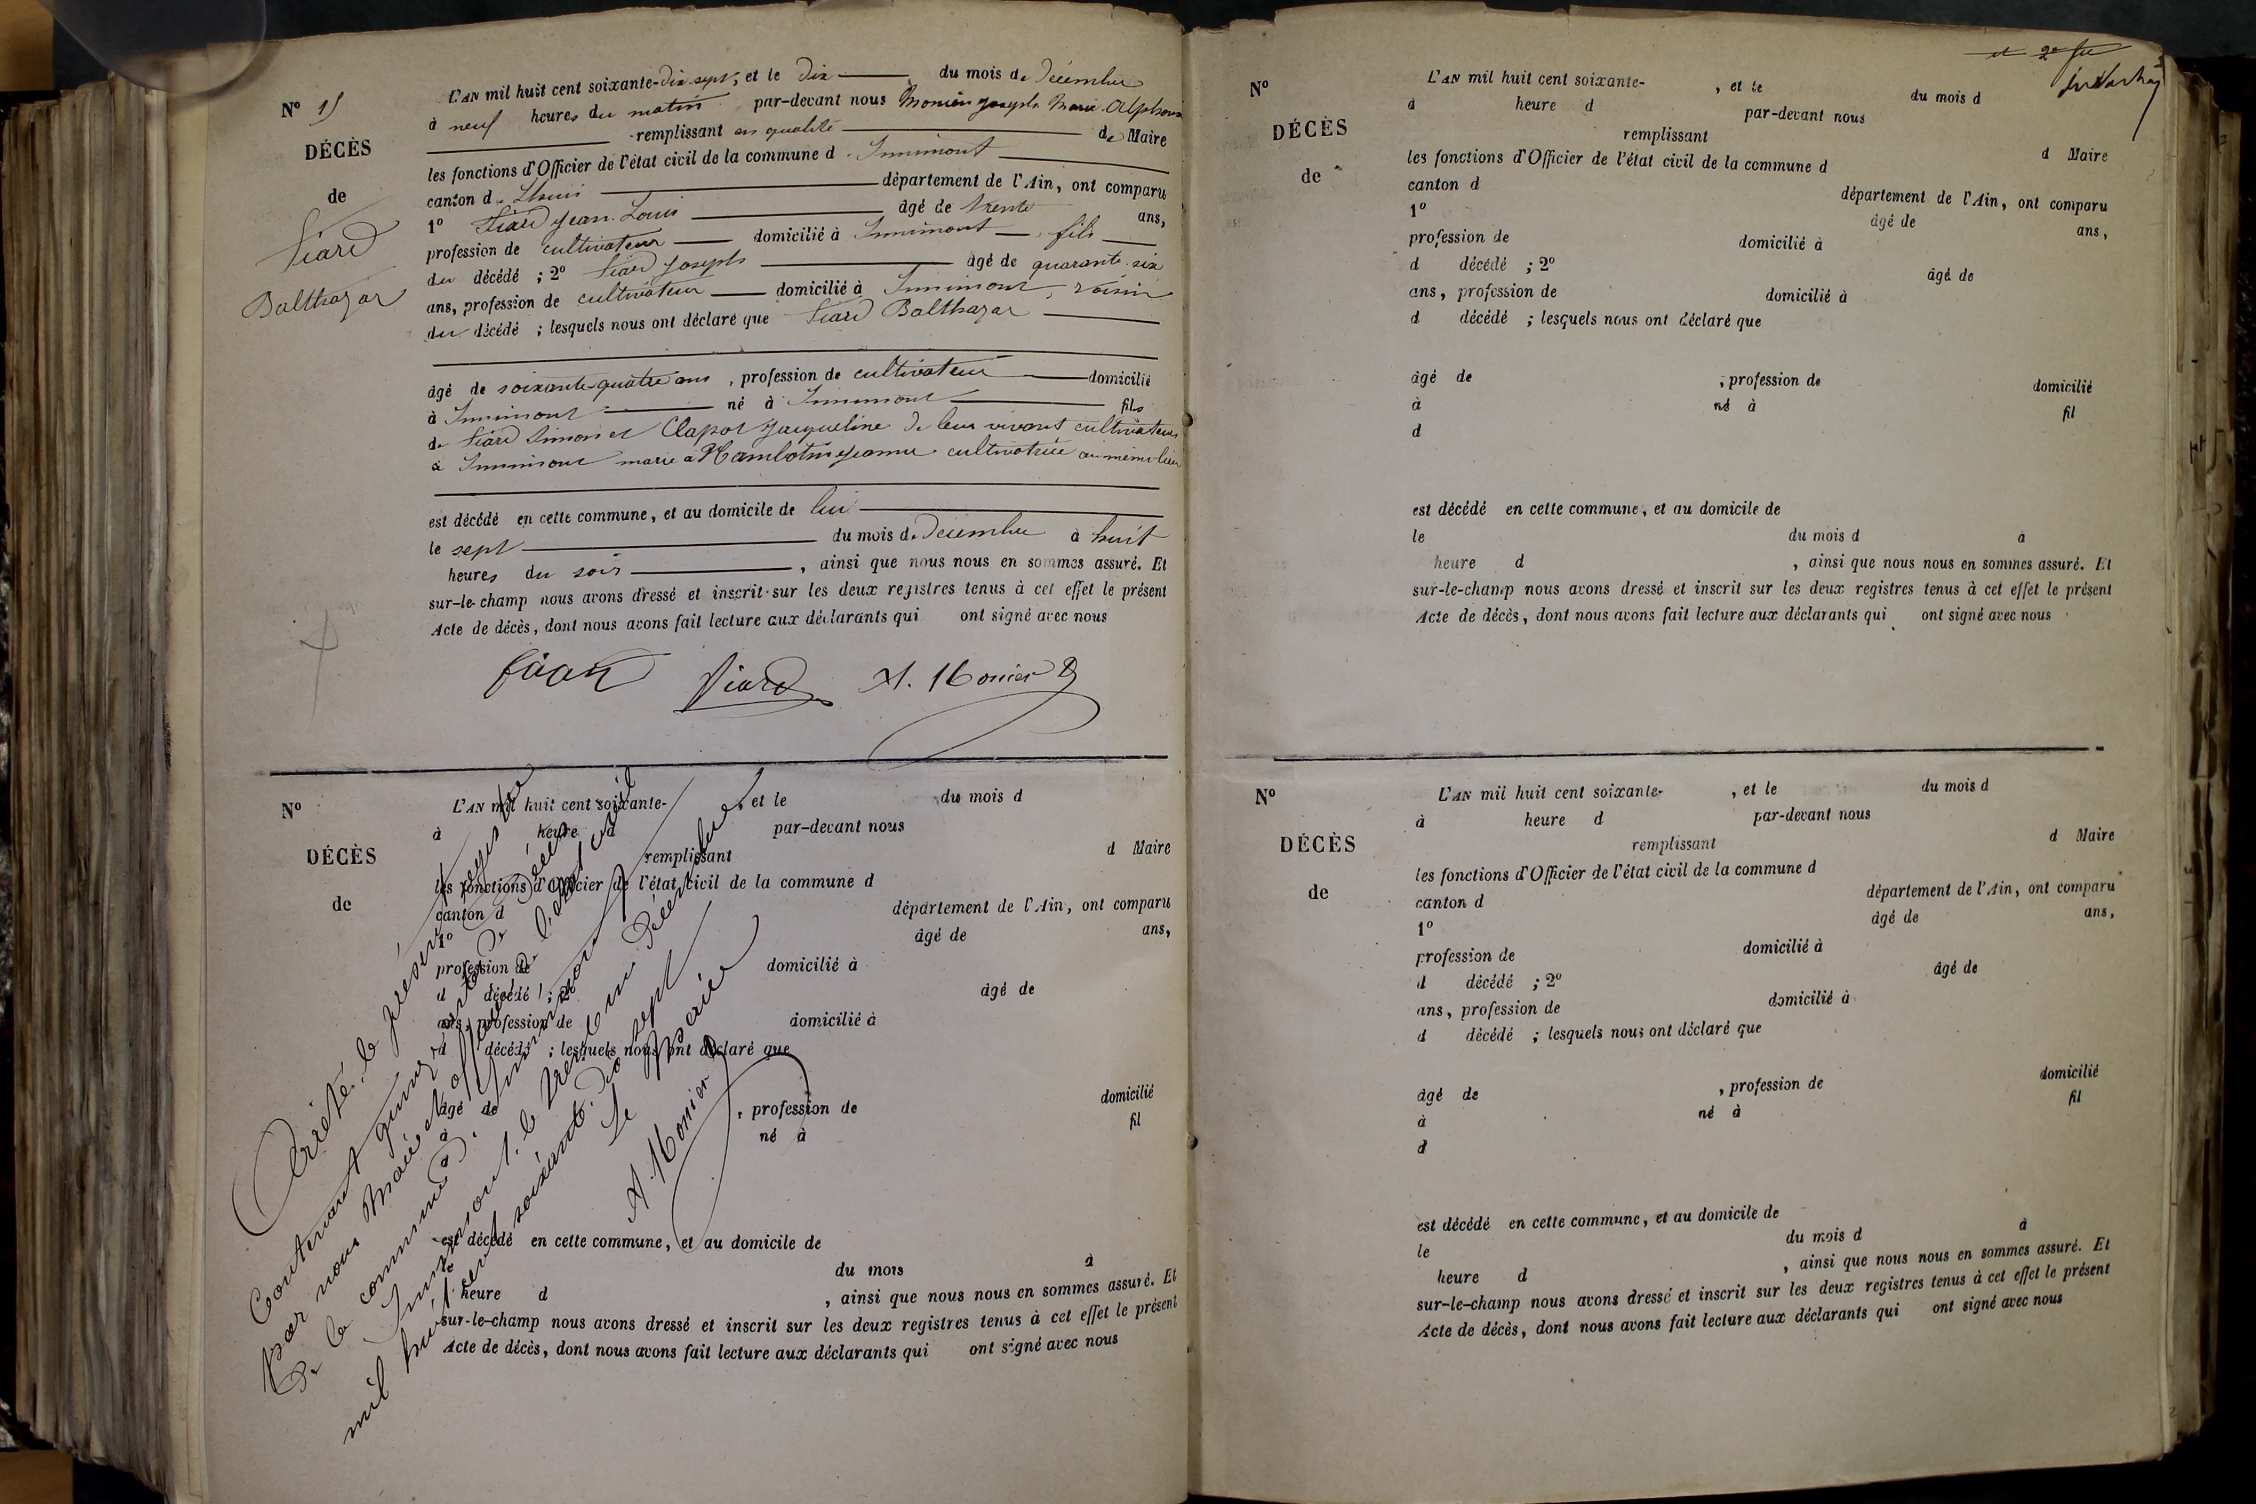 N° 15
DÉCÈS
de
Fiard
Balthazar
L'AN mil huit cent soixante-dix sept, et le dix du mois de Décembre
à neuf heures du matin par-devant nous Monier Joseph Marie Alphonse
remplissant en qualité de Maire
les fonctions d'Officier de l'état civil de la commune d'Innimont
canton de Lhuis département de l'Ain, ont comparu
1° Fiard Jean Louis âgé de trente ans,
profession de cultivateur domicilié à Innimont fils
du décédé ; 2° Fiard Joseph âgé de quarante six
ans, profession de cultivateur domicilié à Innimont, voisin
du décédé ; lesquels nous ont déclaré que Fiard Balthazar
âgé de soixante quatre ans, profession de cultivateur domicilié
à Innimont né à Innimont fils
de Fiard Simon et Clapot Jacqueline de leur vivant cultivateurs
à Innimont marié à Jeanne cultivatrice au même lieu
est décédé en cette commune, et au domicile de lui
le sept du mois de Décembre à huit
heures du soir, ainsi que nous nous en sommes assuré. Et
sur-le-champ nous avons dressé et inscrit sur les deux registres tenus à cet effet le présent
Acte de décès, dont nous avons fait lecture aux déclarants qui ont signé avec nous
Fiard A. Monier
N°
DÉCÈS
de
L'AN mil huit cent soixante- , et le du mois d
à heure d par-devant nous
remplissant d Maire
les fonctions d'Officier de l'état civil de la commune d
canton d département de l'Ain, ont comparu
1° âgé de ans,
profession de domicilié à
d décédé ; 2° âgé de
ans, profession de domicilié à
d décédé ; lesquels nous ont déclaré que
âgé de , profession de domicilié
à né à fil
d
est décédé en cette commune, et au domicile de
le du mois à
heure d , ainsi que nous nous en sommes assuré. Et
sur-le-champ nous avons dressé et inscrit sur les deux registres tenus à cet effet le présent
Acte de décès, dont nous avons fait lecture aux déclarants qui ont signé avec nous
Arrêté le présent registre
Contenant quinze actes de Décès
par nous Maire et officier de l'état civil
de la commune d'Innimont
Innimont, le trente un Décembre
mil huit cent soixante dix sept
Le Maire
A. Monier
et 2e
N°
DÉCÈS
de
L'AN mil huit cent soixante- , et le du mois d
à heure d par-devant nous
remplissant d Maire
les fonctions d'Officier de l'état civil de la commune d
canton d département de l'Ain, ont comparu
1° âgé de ans,
profession de domicilié à
d décédé ; 2° âgé de
ans, profession de domicilié à
d décédé ; lesquels nous ont déclaré que
âgé de , profession de domicilié
à né à fil
d
est décédé en cette commune, et au domicile de
le du mois d à
heure d , ainsi que nous nous en sommes assuré. Et
sur-le-champ nous avons dressé et inscrit sur les deux registres tenus à cet effet le présent
Acte de décès, dont nous avons fait lecture aux déclarants qui ont signé avec nous
N°
DÉCÈS
de
L'AN mil huit cent soixante- , et le du mois d
à heure d par-devant nous
remplissant d Maire
les fonctions d'Officier de l'état civil de la commune d
canton d département de l'Ain, ont comparu
1° âgé de ans,
profession de domicilié à
d décédé ; 2° âgé de
ans, profession de domicilié à
d décédé ; lesquels nous ont déclaré que
âgé de , profession de domicilié
à né à fil
d
est décédé en cette commune, et au domicile de
le du mois d à
heure d , ainsi que nous nous en sommes assuré. Et
sur-le-champ nous avons dressé et inscrit sur les deux registres tenus à cet effet le présent
Acte de décès, dont nous avons fait lecture aux déclarants qui ont signé avec nous